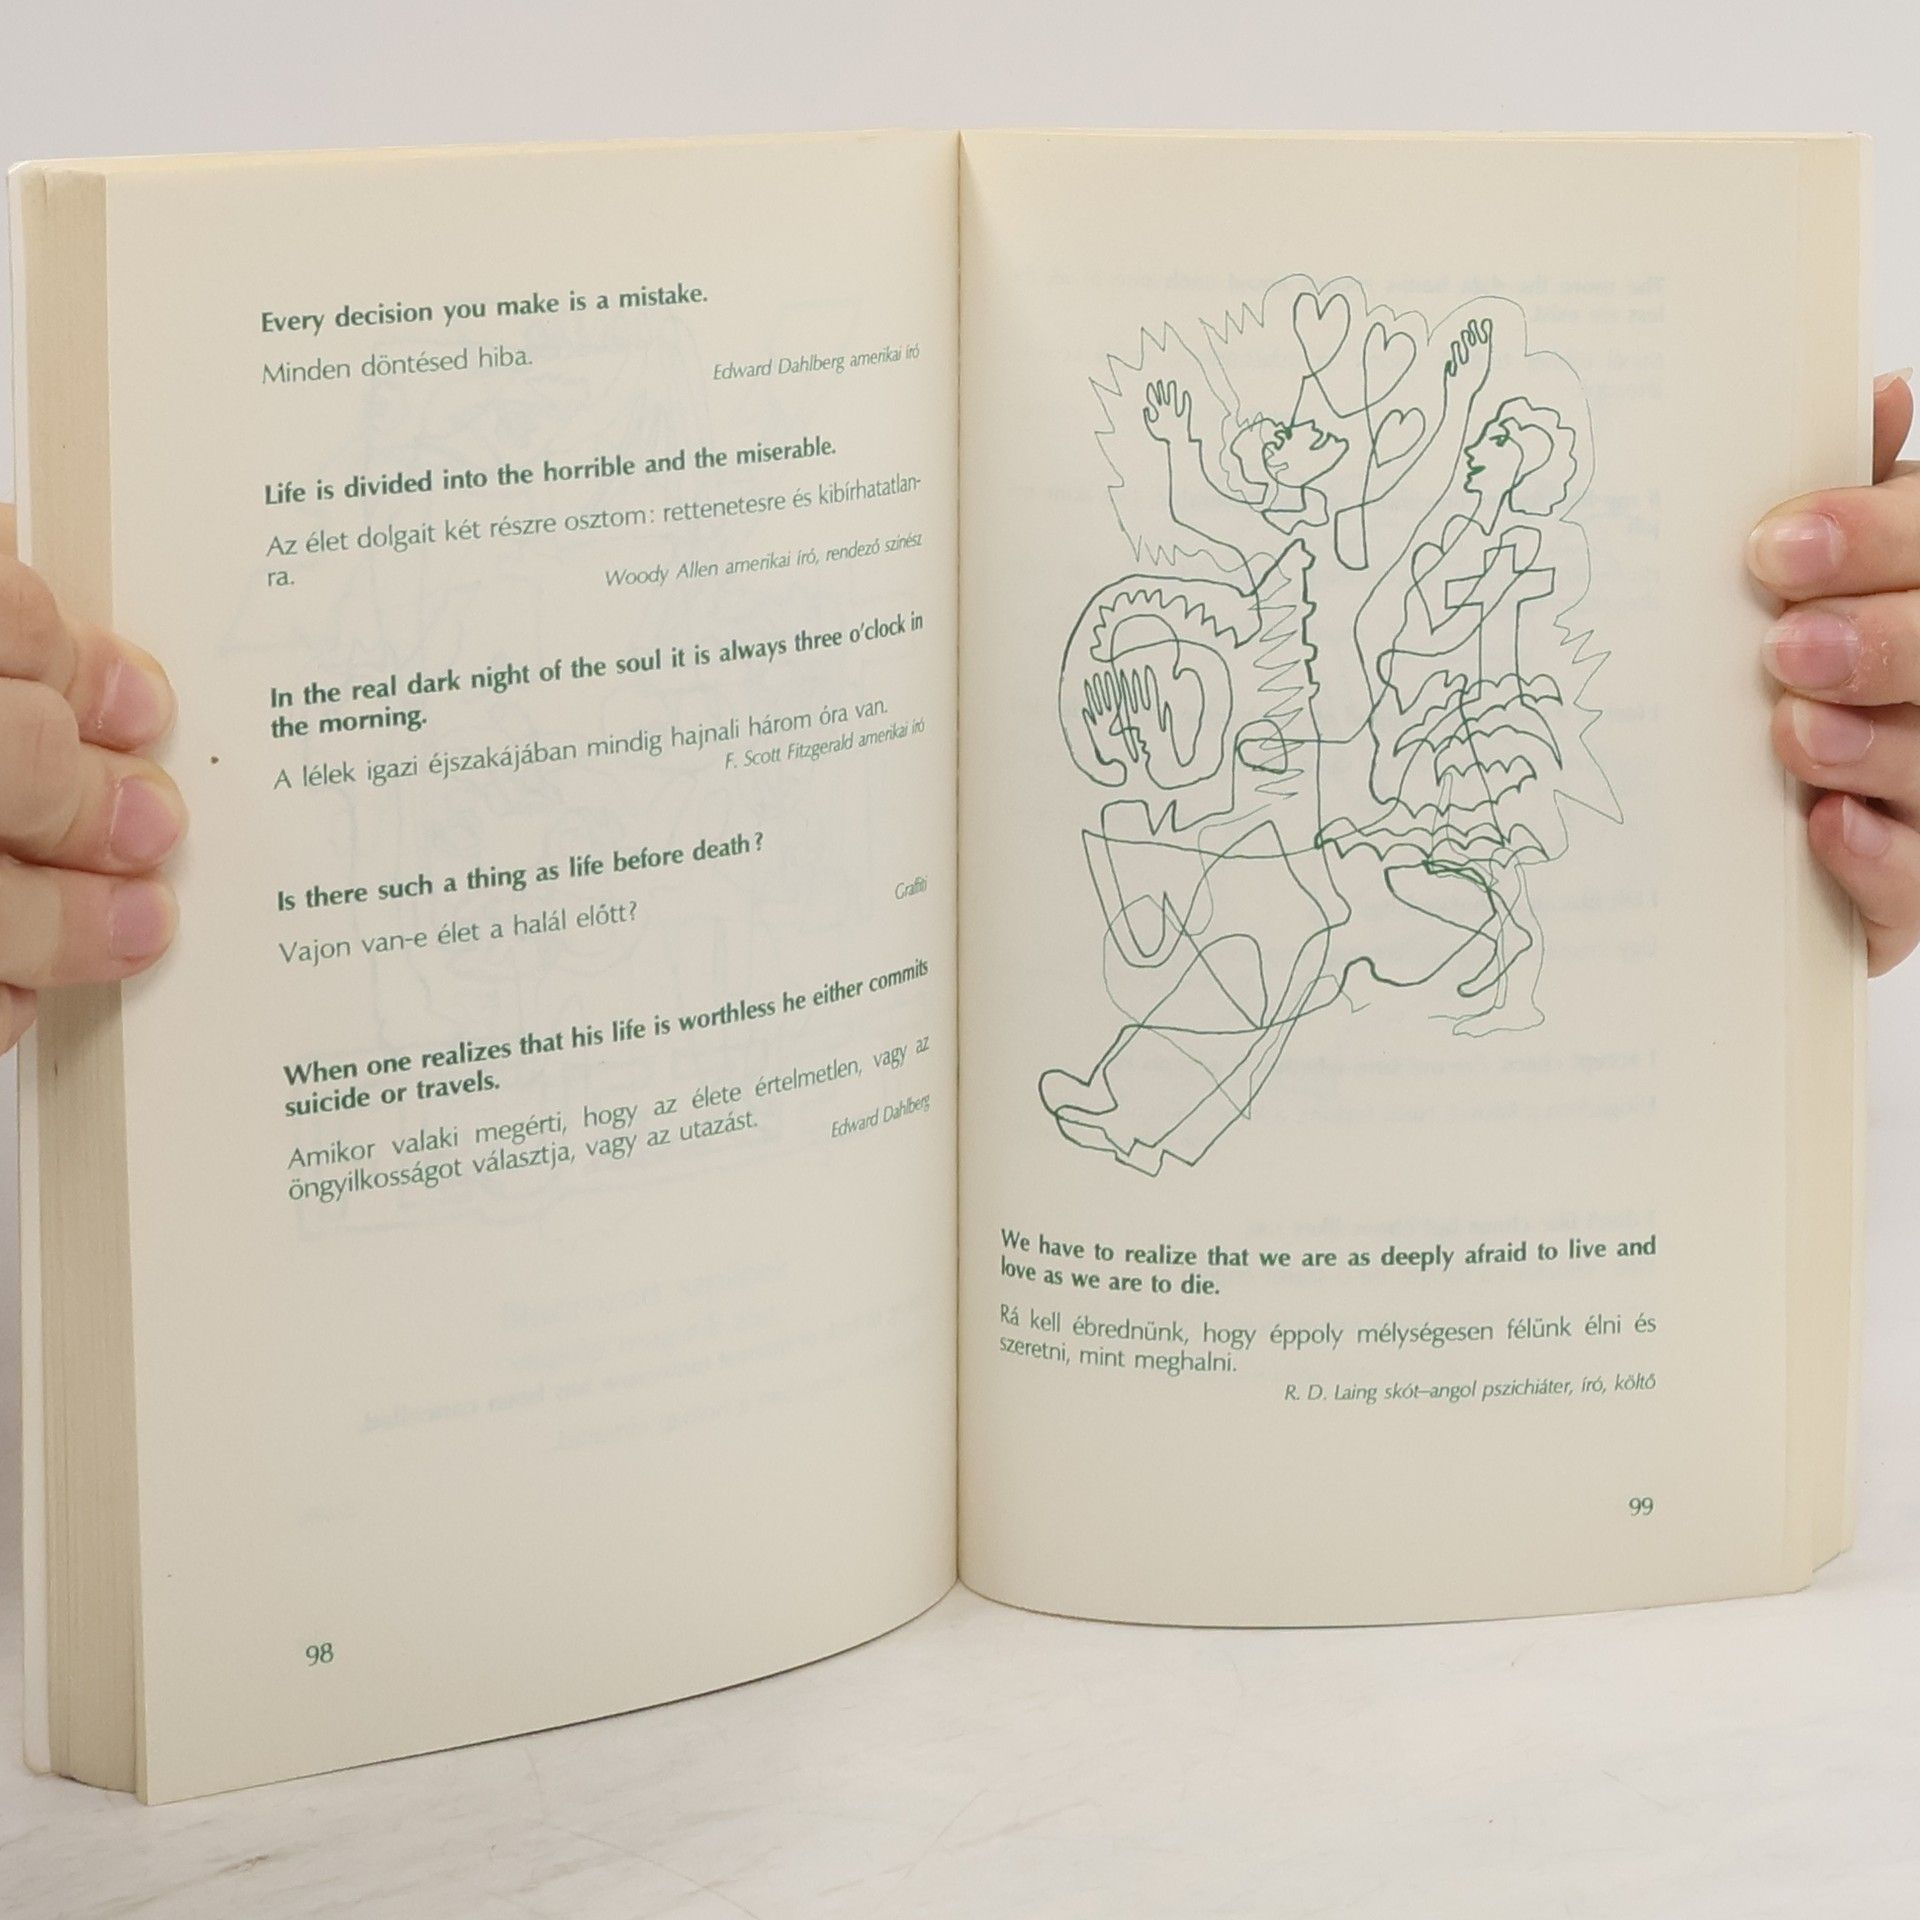 Every decision you make is a mistake.
Minden döntésed hiba.
Edward Dahlberg amerikai író
Life is divided into the horrible and the miserable.
Az élet dolgait két részre osztom: rettenetesre és kibírhatatlan-
ra.
Woody Allen amerikai író, rendező színész
In the real dark night of the soul it is always three o'clock in
the morning.
A lélek igazi éjszakájában mindig hajnali három óra van.
F. Scott Fitzgerald amerikai író
Is there such a thing as life before death?
Graffiti
Vajon van-e élet a halál előtt?
When one realizes that his life is worthless he either commits
suicide or travels.
Amikor valaki megérti, hogy az élete értelmetlen, vagy az
öngyilkosságot választja, vagy az utazást.
Edward Dahlberg
98
We have to realize that we are as deeply afraid to live and
love as we are to die.
Rá kell ébrednünk, hogy éppoly mélységesen félünk élni és
szeretni, mint meghalni.
R. D. Laing skót–angol pszichiáter, író, költő
99